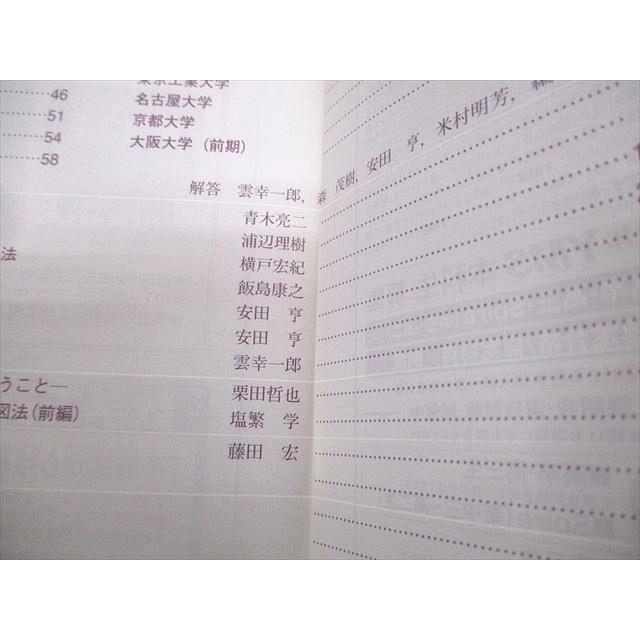 東京工業大学
46 名古屋大学
51 京都大学
54 大阪大学（前期）
58
解答 雲幸一郎, 森 茂樹, 安田 亨, 米村明芳,
青木亮二
浦辺理樹
法 横戸宏紀
飯島康之
安田 亨
安田 亨
雲幸一郎
うこと― 栗田哲也
図法（前編） 塩繁 学
藤田 宏